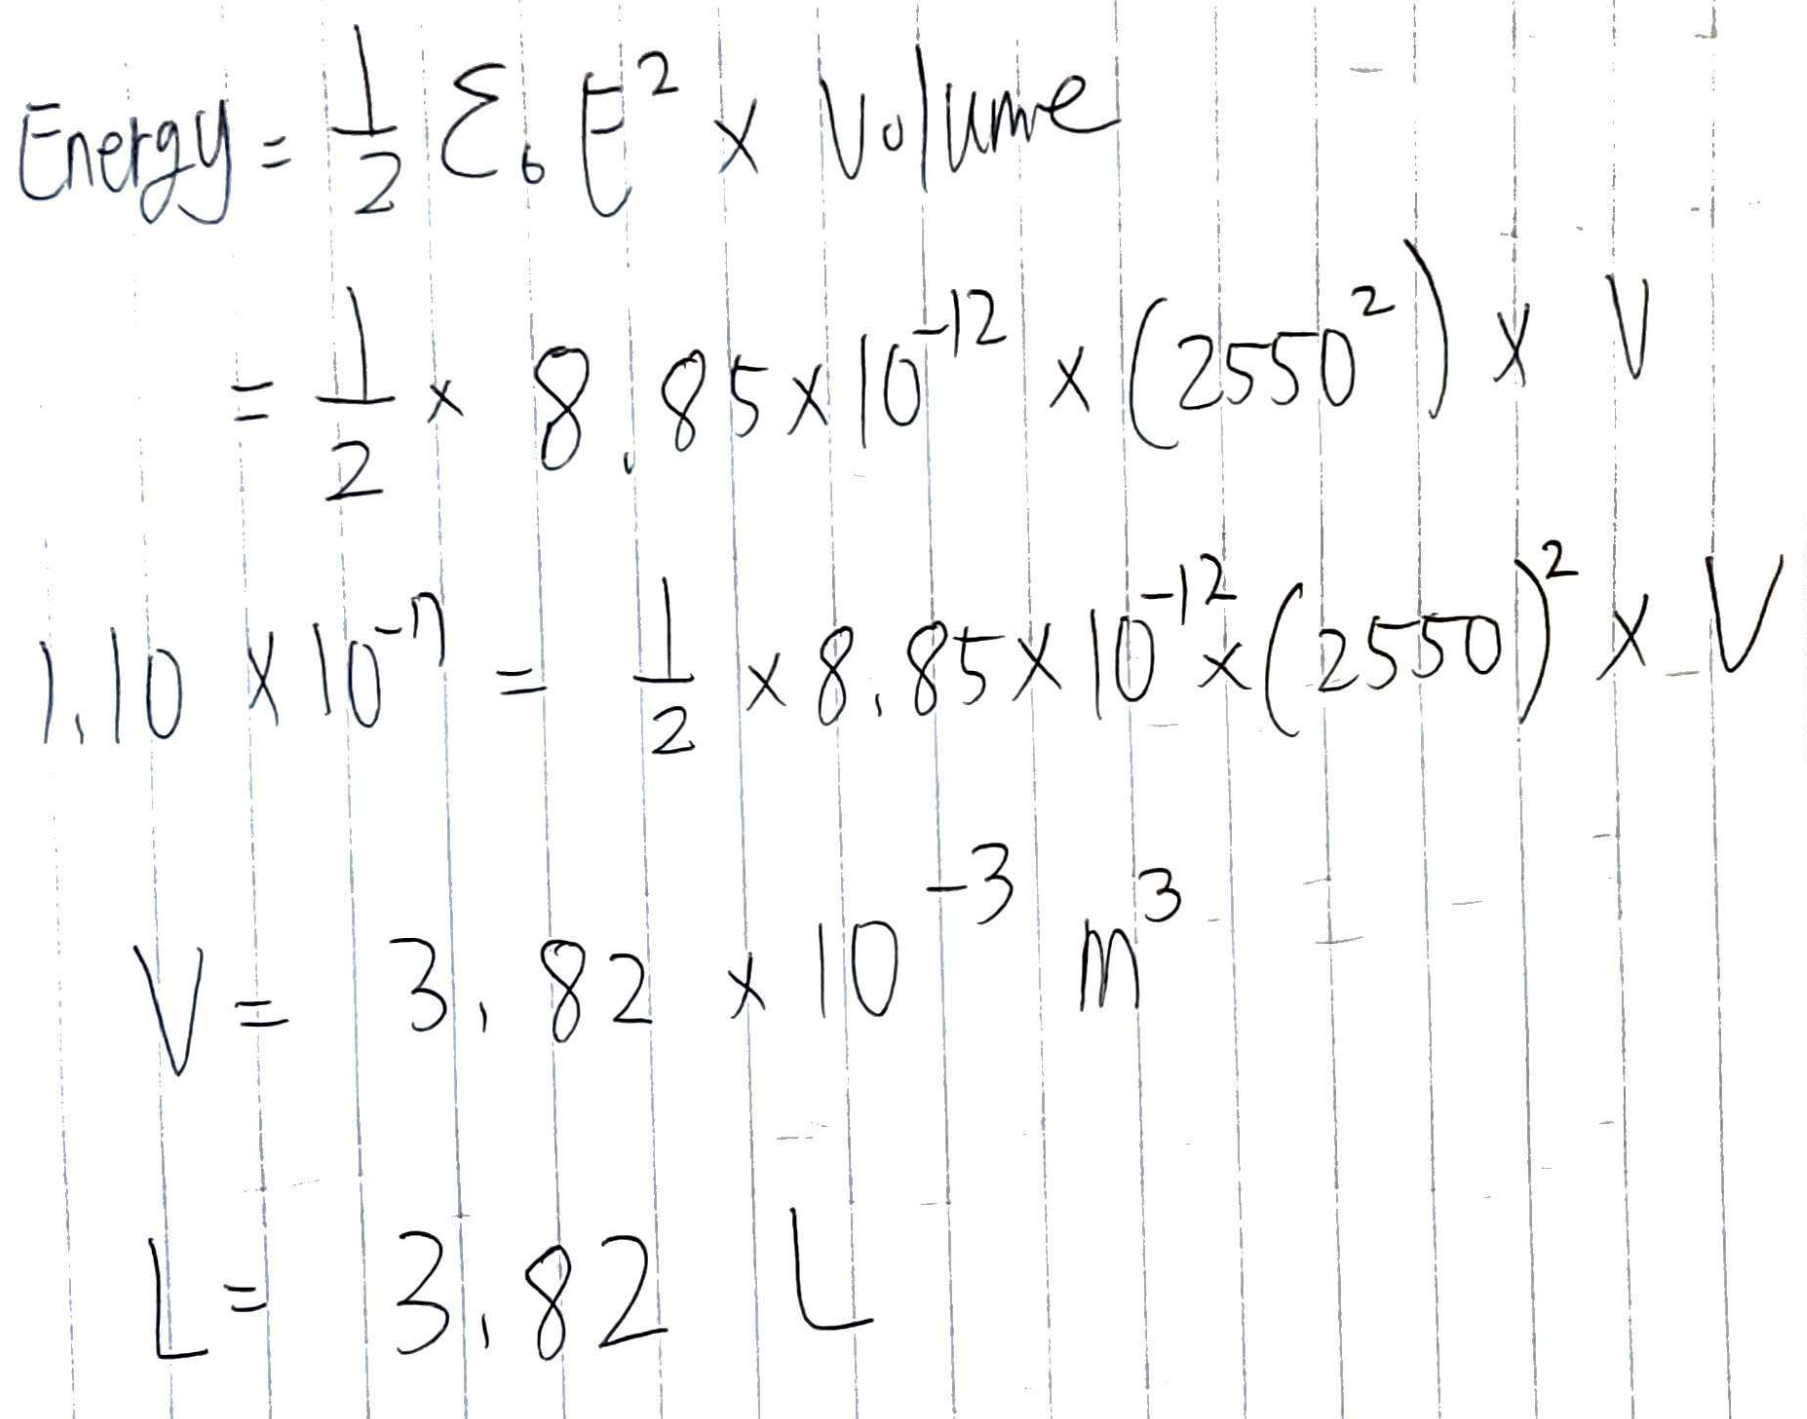 Energy = 1/2 ε₀ E² × Volume
= 1/2 × 8.85 × 10⁻¹² × (2550²) × V
1.10 × 10⁻⁷ = 1/2 × 8.85 × 10⁻¹² × (2550)² × V
V = 3.82 × 10⁻³ m³
L = 3.82 L